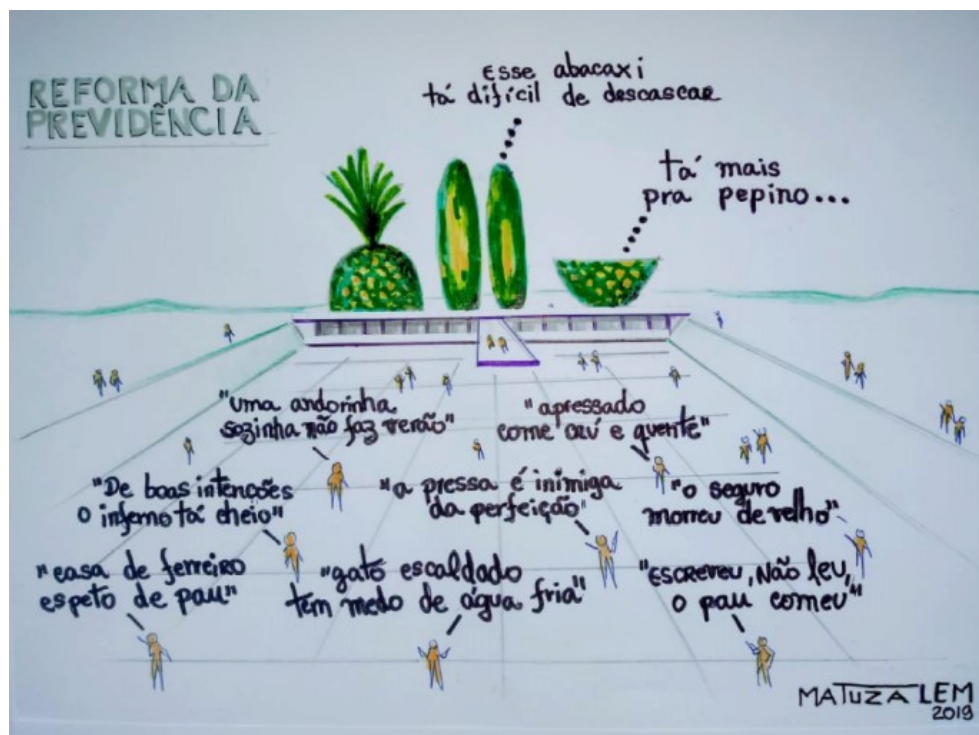 REFORMA DA
PREVIDÊNCIA
Esse abacaxi
tá difícil de descascar
tá mais
pra pepino...
"uma andorinha
sozinha não faz verão"
"apressado
come cru e quente"
"De boas intenções
o inferno tá cheio"
"a pressa é inimiga
da perfeição"
"o seguro
morreu de velho"
"casa de ferreiro
espeto de pau"
"gato escaldado
tem medo de água fria"
"ESCREVEU, Não leu,
o pau comeu"
MATUZALEM
2019